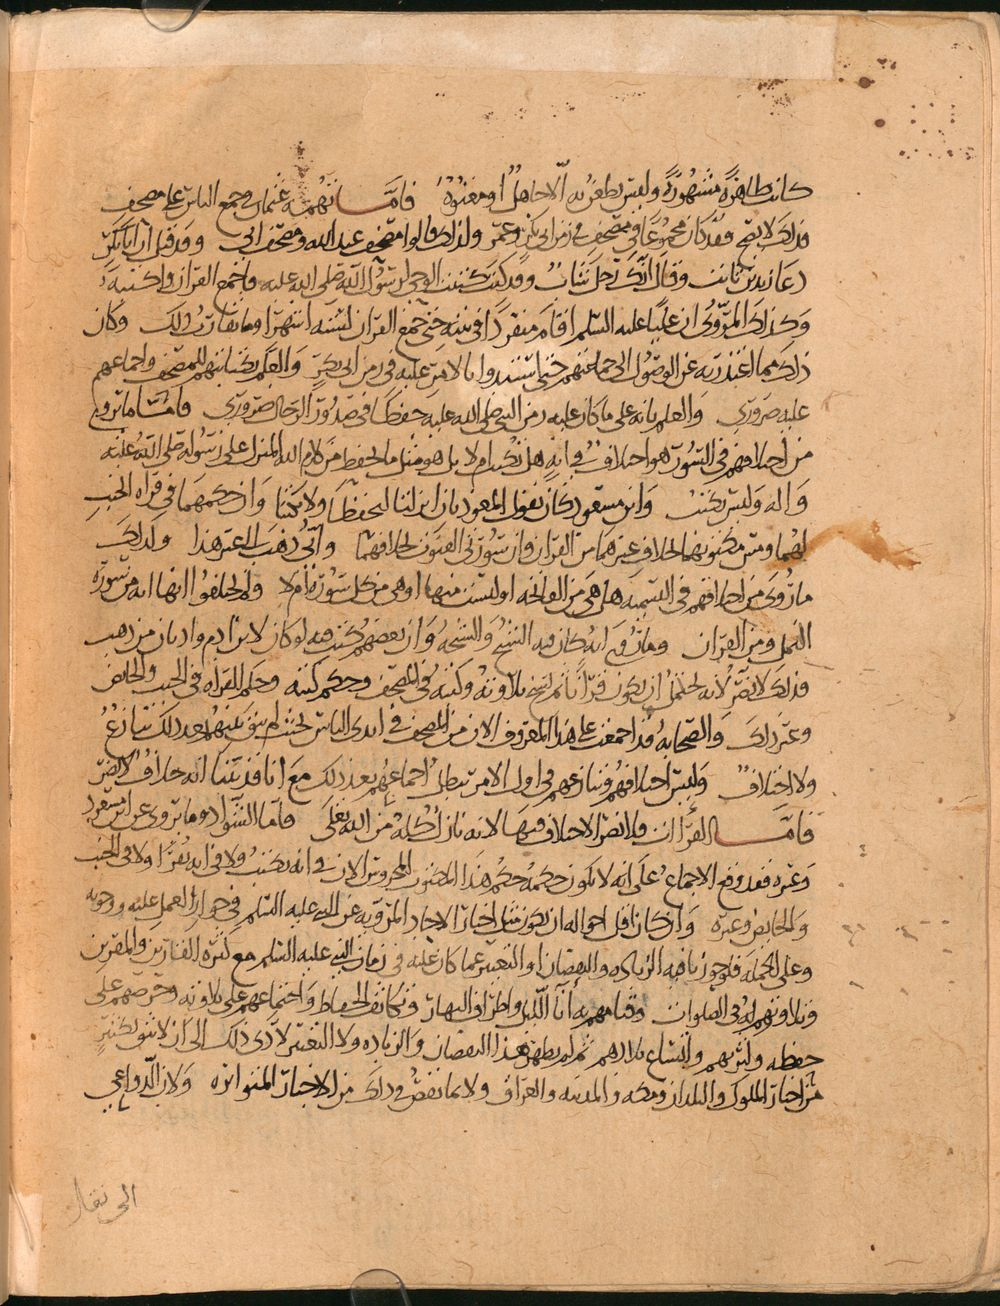 كانت ظاهرة مشهورة وليس يطعن به الا جاهل او معتوه فاما تهمه عثمان في جمع الناس على مصحف
فذلك لا يصح فقد كان مجموعا في مصحف في زمن ابي بكر وعمر ولذلك قالوا مصحف عبد الله ومصحف ابي وقد قيل ان ابا بكر
دعا زيد بن ثابت وقال انك رجل شاب وقد كنت تكتب الوحي لرسول الله صلى الله عليه فاجمع القران واكتبه
وكذلك المروي ان عليا عليه السلم اقام منفردا في بيته حتى جمع القران لستة اشهر او ما يقارب ذلك وكان
ذلك مما اعتذر به عن الوصول الى جماعتهم حتى استبدوا بالامر عليه في زمن ابي بكر والعلم بكتابتهم للمصحف واجماعهم
عليه ضروري والعلم بانه على ما كان عليه زمن النبي صلى الله عليه حفظا في صدور الرجال ضروري فاما ما يروى
من اختلافهم في السور هو اختلاف في انه هل تكتب ام لا بل هو مثل ما يحفظ من كلام الله المنزل على رسوله صلى الله عليه
واله وليس يكتب وابن مسعود كان يقول المعوذتان انزلتا لتحفظا ولا تكتبا وان حكمهما في قراة الجنب
لهما ومس مكتوبهما بخلاف غيرهما من القران وان سورتي القنوت بخلافهما وابي ذهب الى غير هذا ولذلك
ما روي من اختلافهم في التسمية هل هي من الفاتحة او ليست منها او هي من كل سورة ام لا ولم يختلفوا انها اية من سورة
النمل ومن القران وما روي انه كان فيه الشيخ والشيخة وان بعضهم كتب فيه لو كان لابن ادم واديان من ذهب
فذلك لا يضر لانه يحتمل ان يكون قرانا ثم نسخ تلاوته وكتبه في المصحف وحكم كتبه وحكم القراه في الجنب والحائض
وغير ذلك والصحابة قد اجمعت على هذا المعروف الان من المصحف في ايدي الناس بحيث لم يبق بينهم بعد ذلك تنازع
ولا اختلاف وليس اختلافهم وتنازعهم في اول الامر يبطل اجماعهم بعد ذلك مع انا قد بينا انه خلاف لا يضر
فاما القراات فلا يضر الاختلاف فيها لانه نازل كله من الله تعالى فاما الشواذ وما يروى عن ابن مسعود
وغيره فقد وقع الاجماع على انه لا يكون حكمه حكم هذا المكتوب المحروس الان في انه يكتب ولا في انه يقرا ولا في الجنب
والحائض وغيره وان كان اقل احواله ان يكون مثل اخبار الاحاد المروية عن النبي عليه السلم في جواز العمل عليه ووجوبه
وعلى الجملة فلو جوزنا فيه الزيادة والنقصان او التغيير عما كان عليه في زمان النبي عليه السلم مع كثرة القارئين والمقرين
وتلاوتهم له في الصلوات وقيامهم به اناء الليل واطراف النهار وتكاثف الحفاظ واجتماعهم على تلاوته وحرصهم على
حفظه وكثرتهم واتساع بلادهم ثم لم يظهر هذا النقصان والزيادة ولا التغيير لادى ذلك الى ان لا نثق بكثير
من اخبار الملوك والبلدان ومكة والمدينة والعراق ولا بما نقص في ذلك من الاخبار المتواترة ولان الدواعي
الى نقل